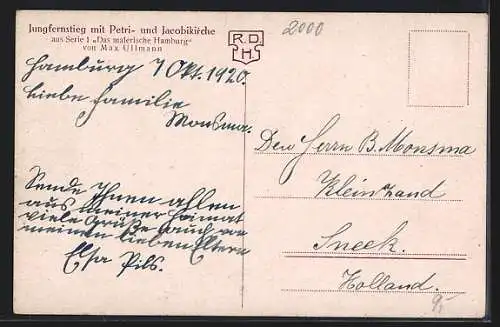 Jungfernstieg mit Petri- und Jacobikirche
aus Serie 1 „Das malerische Hamburg“
von Max Ullmann
R. D.
H.
2000
Hamburg 7 Okt. 1920.
Liebe Familie
Monsma.
Sende Ihnen allen
aus meiner Heimat
viele Grüße auch von
meinen lieben Eltern
Elsa Pils.
Den Herrn B. Monsma
Kleinzand
Sneek.
Holland.
9,-